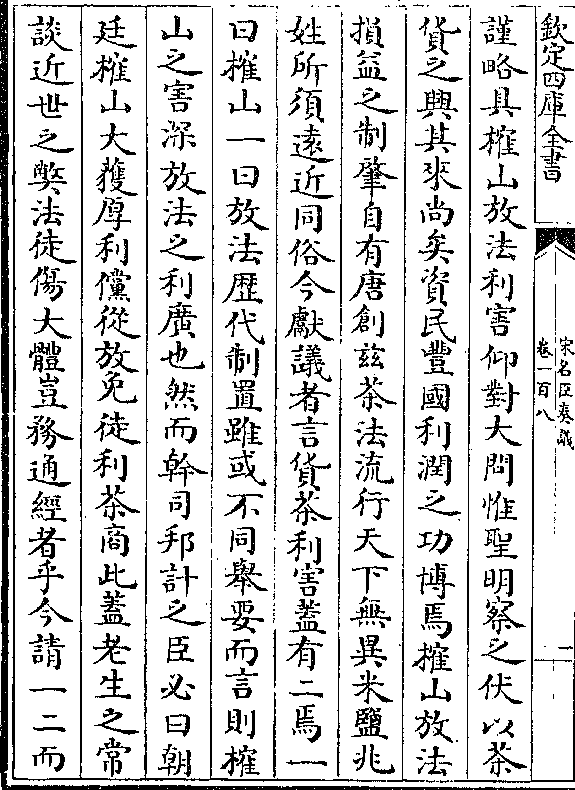 欽定四庫全書
宋名臣奏議
卷一百八
一
謹略具榷山放法利害仰對大問惟聖明察之伏以茶
貨之興其來尚矣資民豐國利潤之功博焉榷山放法
損益之制肇自有唐創兹茶法流行天下無異米鹽兆
姓所須遠近同俗今獻議者言貨茶利害蓋有二焉一
曰榷山一曰放法歴代制置雖或不同舉要而言則榷
山之害深放法之利廣也然而幹司邦計之臣必曰朝
廷榷山大獲厚利儻從放免徒利茶商此蓋老生之常
談近世之弊法徒傷大體豈務通經者乎今請一二而